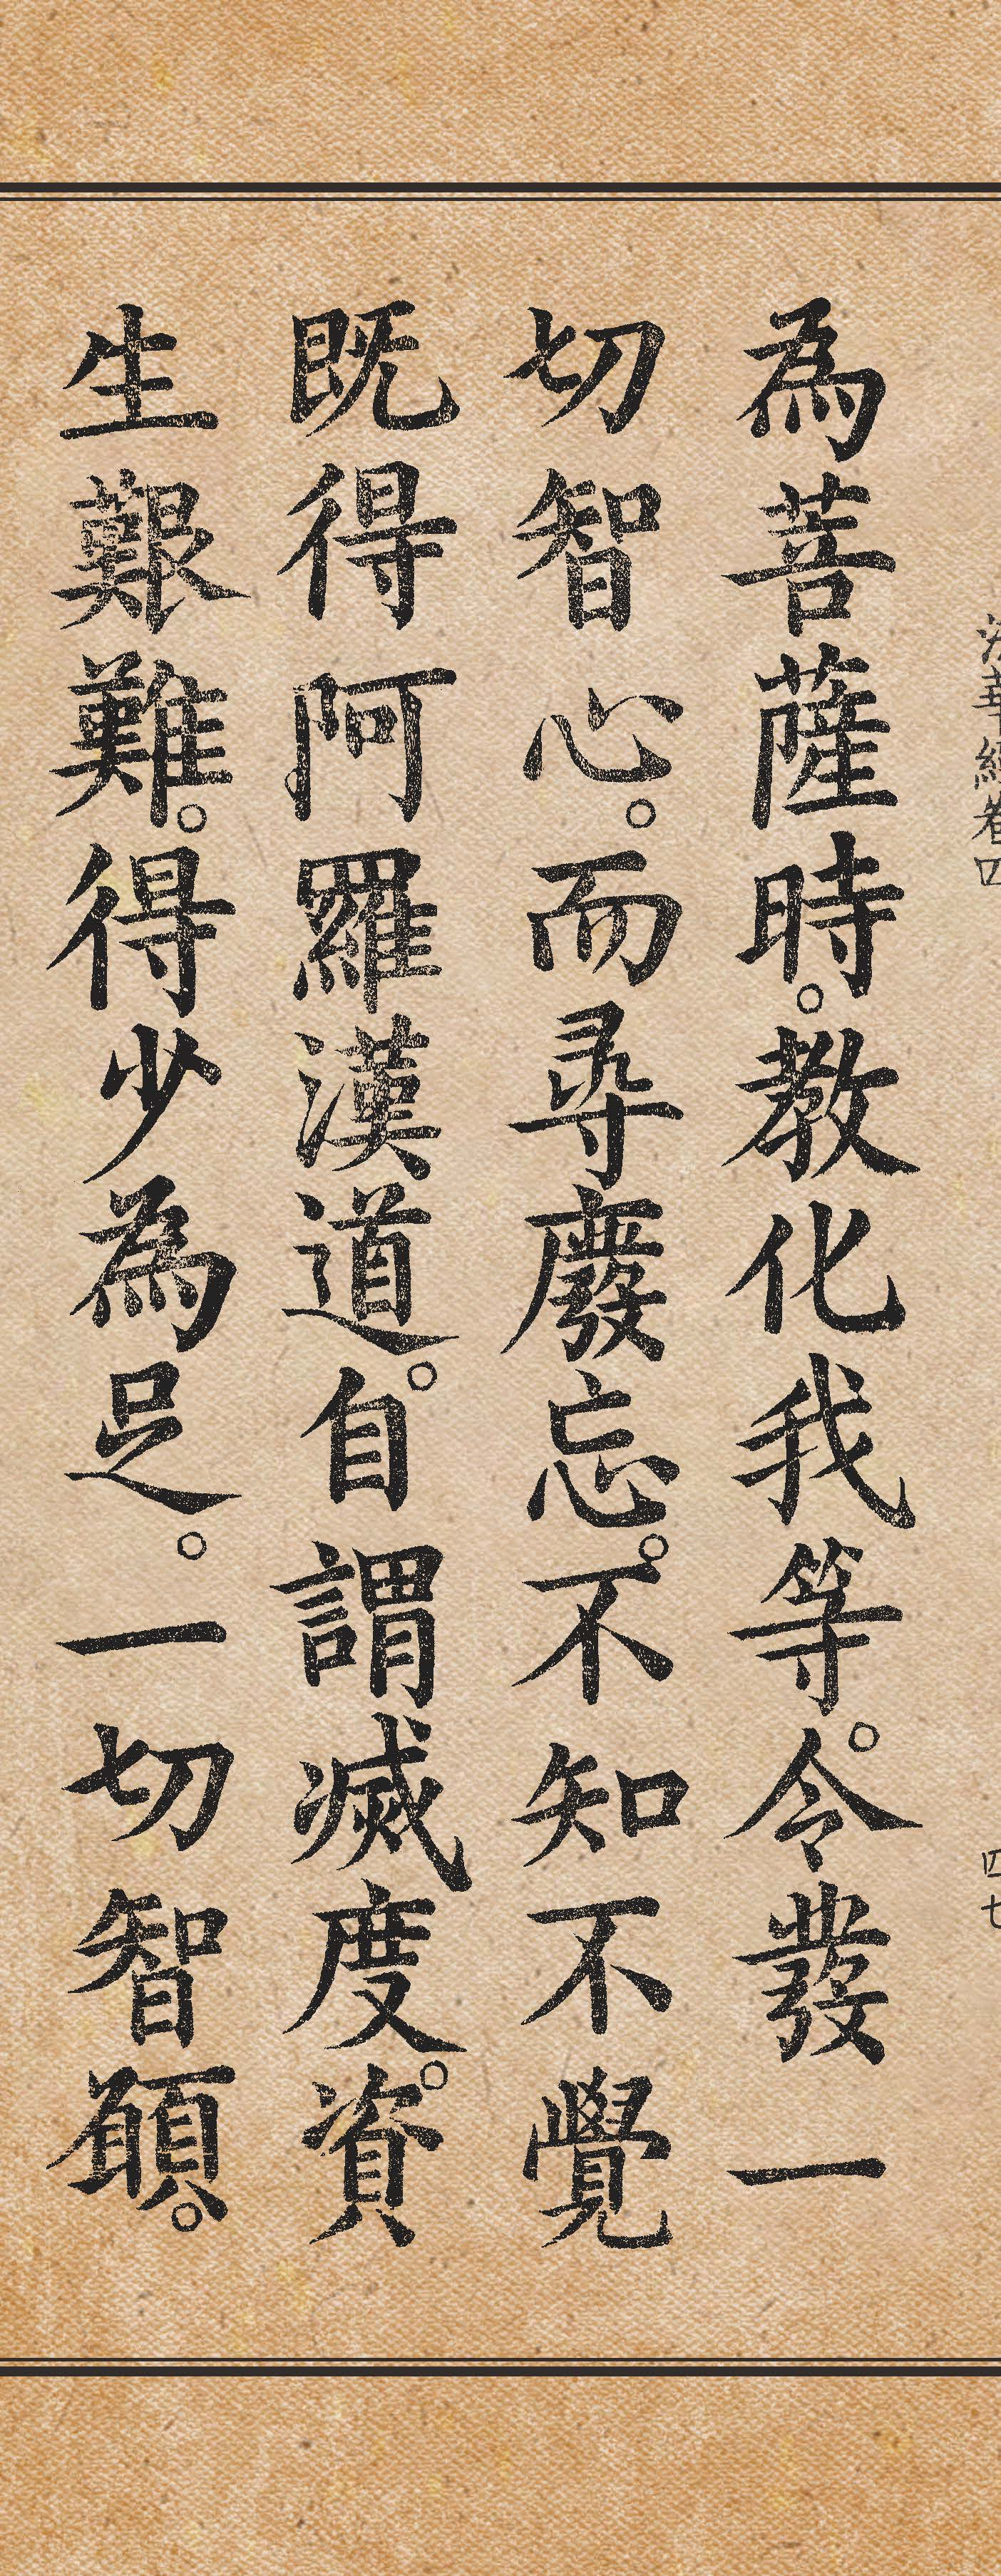 法華經卷四 四七
為菩薩時。教化我等。令發一
切智心。而尋廢忘。不知不覺
既得阿羅漢道。自謂滅度。資
生艱難。得少為足。一切智願。